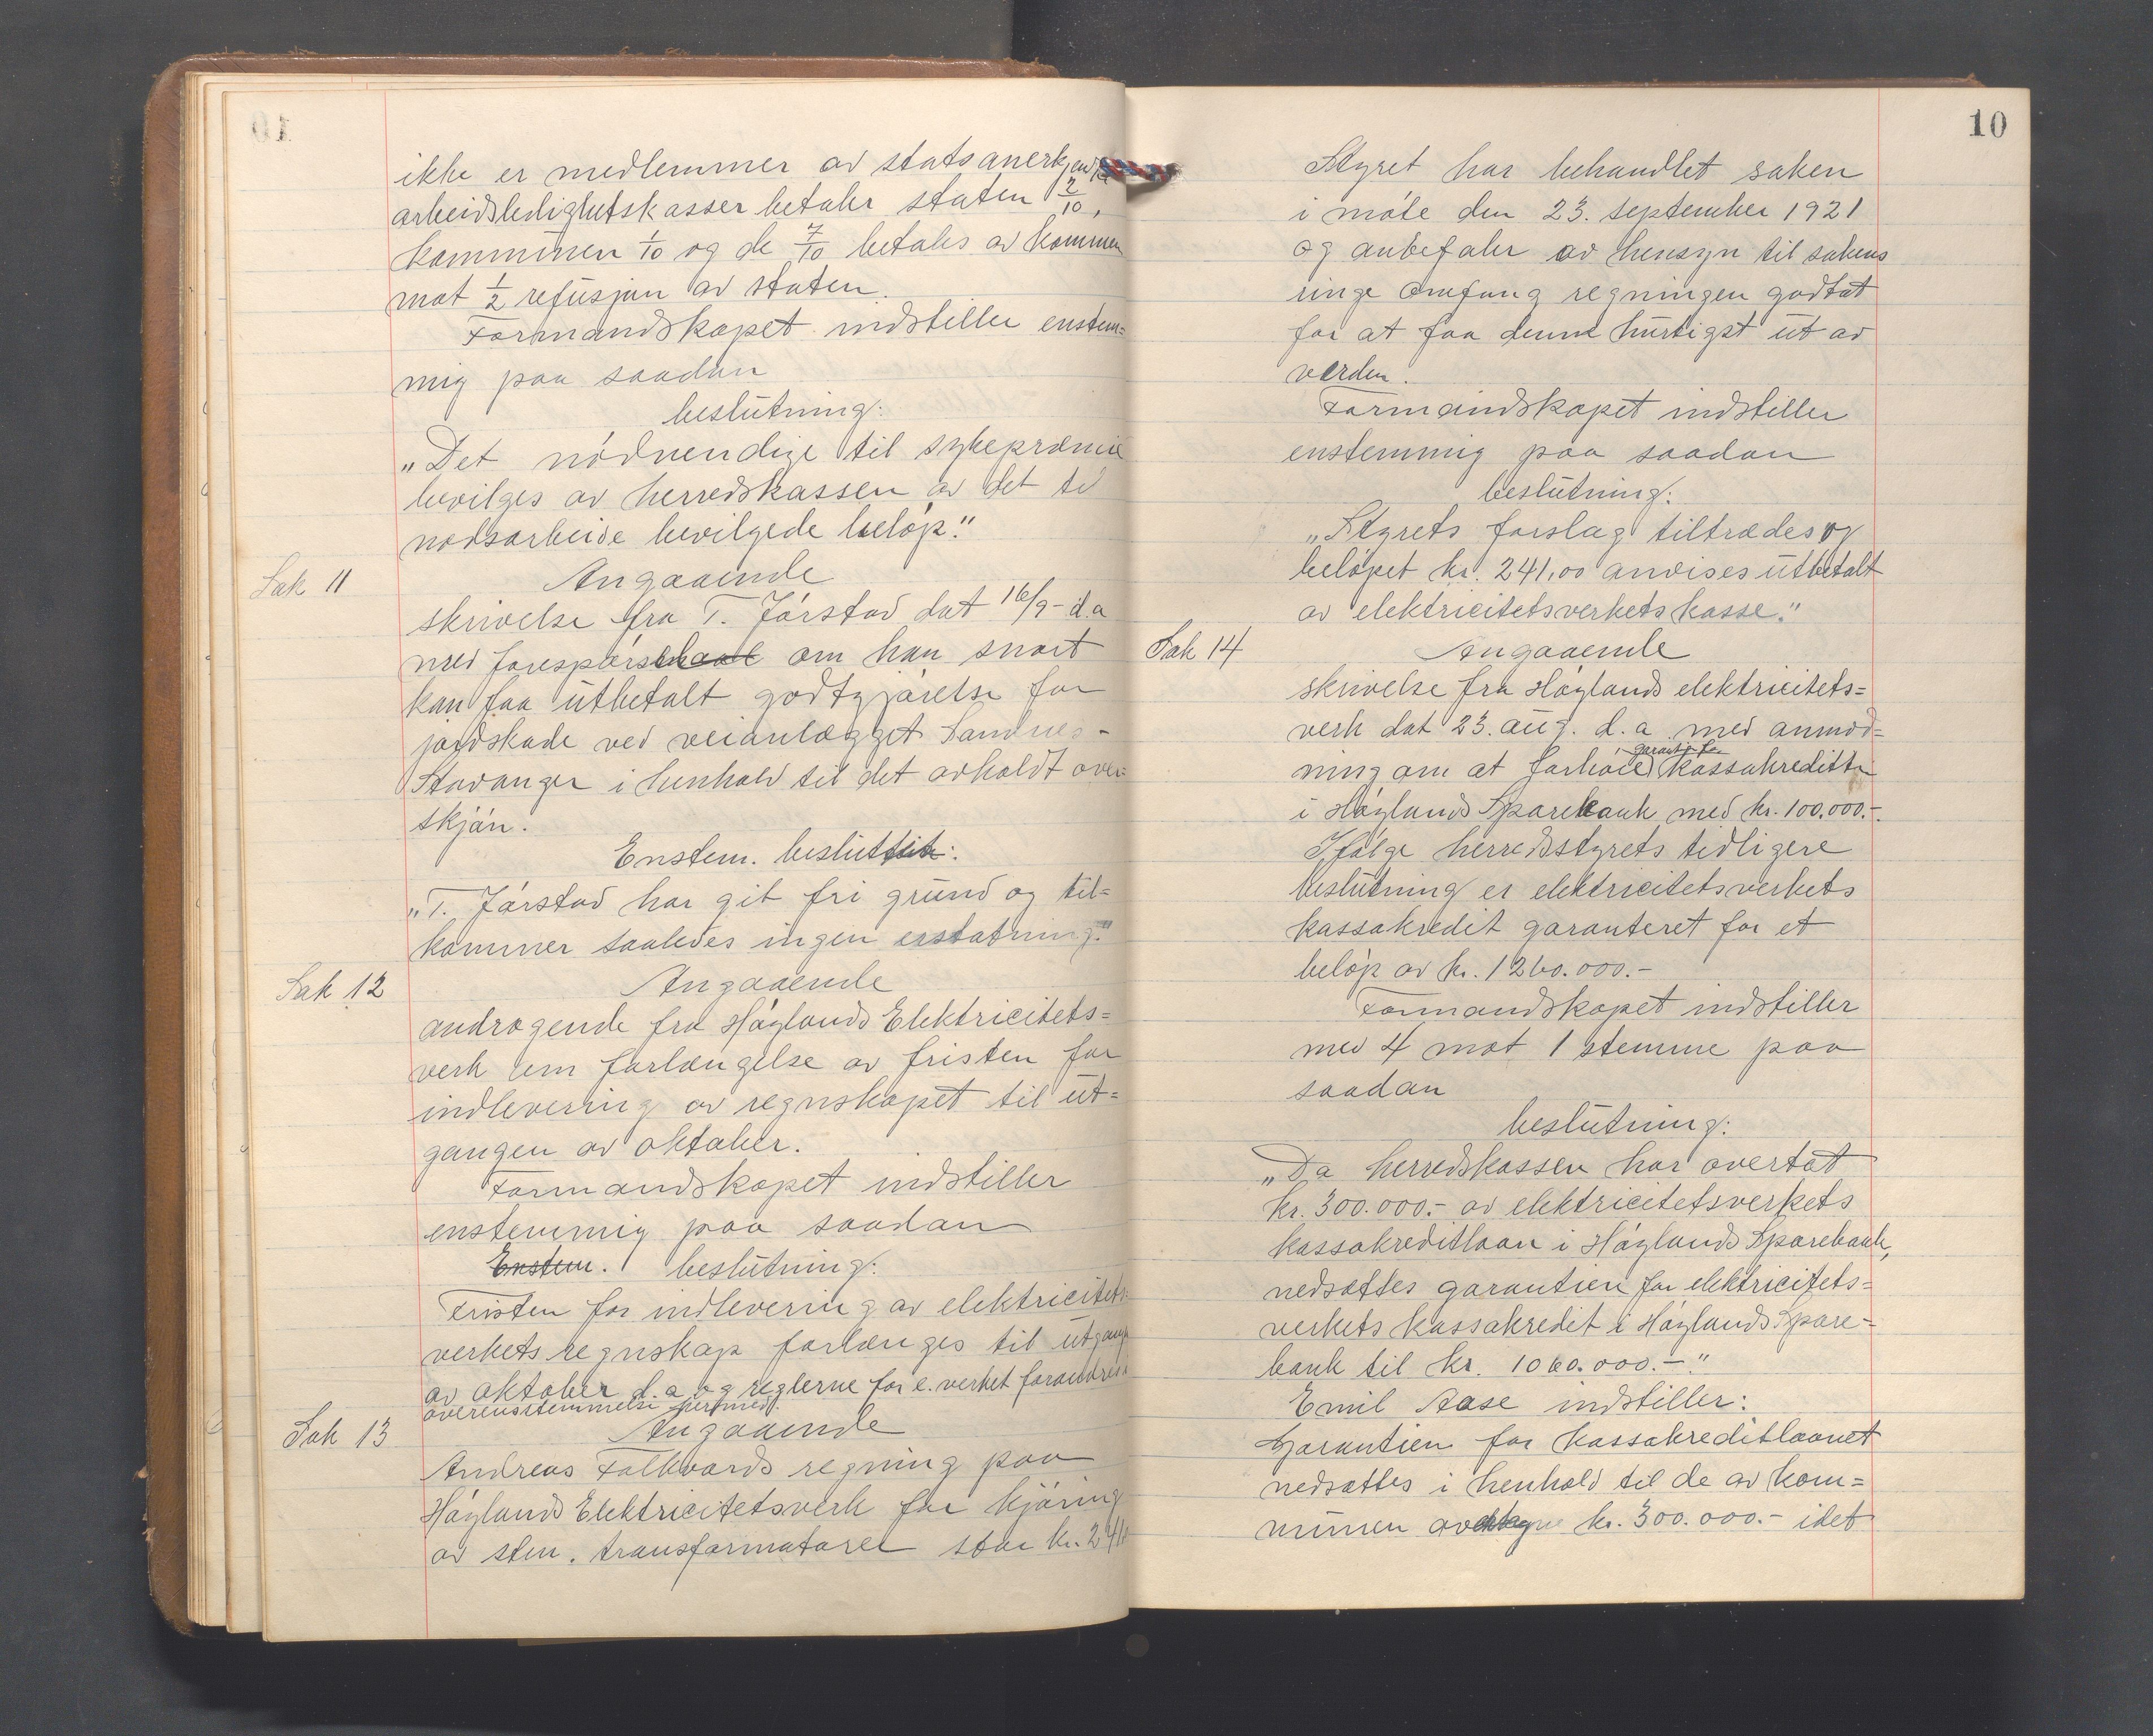 ikke er medlemmer av statsanerkjendte
arbeidsledighetskasser betaler staten 2/10,
kommunen 1/10 og de 7/10 betales av kommunen
mot 1/2 refusjon av staten.
Formandskapet indstiller enstem=
mig paa saadan
beslutning:
„Det nödvendige til sykepræmie
bevilges av herredskassen av det til
nödsarbeide bevilgede belöp."
Sak 11
Angaaende
skrivelse fra T. Jårstad dat 16/9 - d.a
med forespörsel om han snart
kan faa utbetalt godtgjörelse for
jordskade ved veianlægget Sandnes-
Stavanger i henhold til det avholdt over=
skjön.
Enstem. besluttet:
„T. Jårstad har git fri grund og til=
kommer saaledes ingen erstatning."
Sak 12
Angaaende
andragende fra Höylands Elektricitets=
verk om forlængelse av fristen for
indlevering av regnskapet til ut=
gangen av oktober.
Formandskapet indstiller
enstemmig paa saadan
Enstem. beslutning:
Fristen for indlevering av elektricitets-
verkets regnskap forlænges til utgangen
av oktober d.a og reglerne for e. verket forandres i
overensstemmelse hermed.
Sak 13
Angaaende
Andreas Folkvords regning paa
Höylands Elektricitetsverk for kjöring
av sten. transformatorer stor kr. 241
10
Styret har behandlet saken
i möte den 23. september 1921
og anbefaler av hensyn til sakens
ringe omfang regningen godtat
for at faa denne hurtigst ut av
verden.
Formandskapet indstiller
enstemmig paa saadan
beslutning:
„Styrets forslag tiltrædes og
belöpet kr. 241,00 anvises utbetalt
av elektricitetsverkets kasse."
Sak 14
Angaaende
skrivelse fra Höylands elektricitets=
verk dat 23. aug. d.a. med anmod=
garanti for
ning om at forhöie kassakreditten
i Höylands Sparebank med kr. 100.000.-.
Ifölge herredsstyrets tidligere
beslutning er elektricitetsverkets
kassakredit garanteret for et
belöp av kr. 1260.000.-
Formandskapet indstiller
med 4 mot 1 stemme paa
saadan
beslutning:
„Da herredskassen har overtat
kr. 300.000.- av elektricitetsverkets
kassakreditlaan i Höylands Sparebank,
nedsættes garantien for elektricitets=
verkets kassakredit i Höylands Spare=
bank til kr. 1060.000.-"
Emil Aase indstiller:
Garantien for kassakreditlaanet
nedsættes i henhold til de av kom=
munen kr. 300.000.- idet